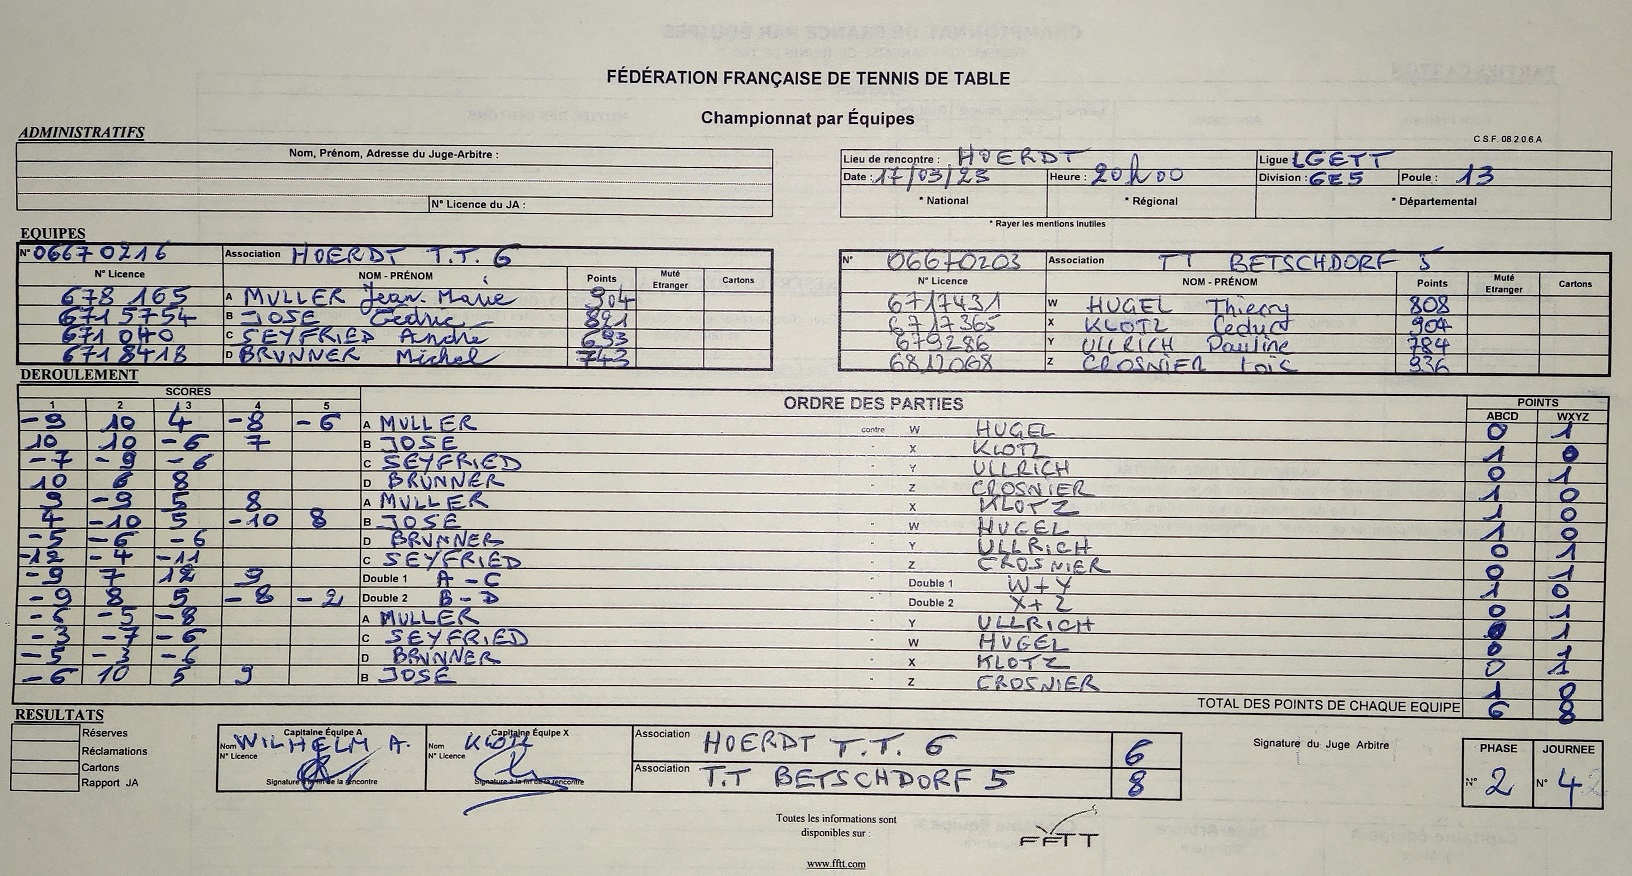 FÉDÉRATION FRANÇAISE DE TENNIS DE TABLE
Championnat par Équipes
ADMINISTRATIFS
C.S.F. 08.2.0.6.A
Nom, Prénom, Adresse du Juge-Arbitre :
N° Licence du JA :
Lieu de rencontre : HOERDT Ligue LGETT
Date : 17/03/23 Heure : 20h00 Division : GE5 Poule : 13
* National * Régional * Départemental
* Rayer les mentions inutiles
EQUIPES
N° 06670216 Association HOERDT T.T. 6
N° Licence NOM - PRÉNOM Points Muté Etranger Cartons
678 165 A MULLER Jean-Marie 904
671 5754 B JOSE Cédric 821
671 040 C SEYFRIED André 693
671 8418 D BRUNNER Michel 743
N° 06670203 Association TT BETSCHDORF 5
N° Licence NOM - PRÉNOM Points Muté Etranger Cartons
6717431 W HUGEL Thierry 808
6717365 X KLOTZ Cedric 904
679286 Y ULLRICH Pauline 784
6812068 Z CROSNIER Loïc 936
DEROULEMENT
SCORES ORDRE DES PARTIES POINTS
1 2 3 4 5 ABCD WXYZ
-9 10 4 -8 -6 A MULLER contre W HUGEL 0 1
10 10 -6 7 B JOSE - X KLOTZ 1 0
-7 -9 -6 C SEYFRIED - Y ULLRICH 0 1
10 6 8 D BRUNNER - Z CROSNIER 1 0
9 -9 5 8 A MULLER - X KLOTZ 1 0
4 -10 5 -10 8 B JOSE - W HUGEL 1 0
-5 -6 -6 D BRUNNER - Y ULLRICH 0 1
-12 -4 -11 C SEYFRIED - Z CROSNIER 0 1
-9 7 12 9 Double 1 A - C Double 1 W + Y 1 0
-9 8 5 -8 -2 Double 2 B - D Double 2 X + Z 0 1
-6 -5 -8 A MULLER - Y ULLRICH 0 1
-3 -7 -6 C SEYFRIED - W HUGEL 0 1
-5 -3 -6 D BRUNNER - X KLOTZ 0 1
-6 10 5 9 B JOSE - Z CROSNIER 1 0
TOTAL DES POINTS DE CHAQUE EQUIPE 6 8
RESULTATS
Réserves
Réclamations
Cartons
Rapport JA
Capitaine Équipe A
Nom WILHELM A.
N° Licence
Signature à la fin de la rencontre
Capitaine Équipe X
Nom KLOTZ
N° Licence
Signature à la fin de la rencontre
Association HOERDT T.T. 6 6
Association T.T BETSCHDORF 5 8
Signature du Juge Arbitre
PHASE JOURNEE
N° 2 N° 4
Toutes les informations sont
disponibles sur :
www.fftt.com
FFTT